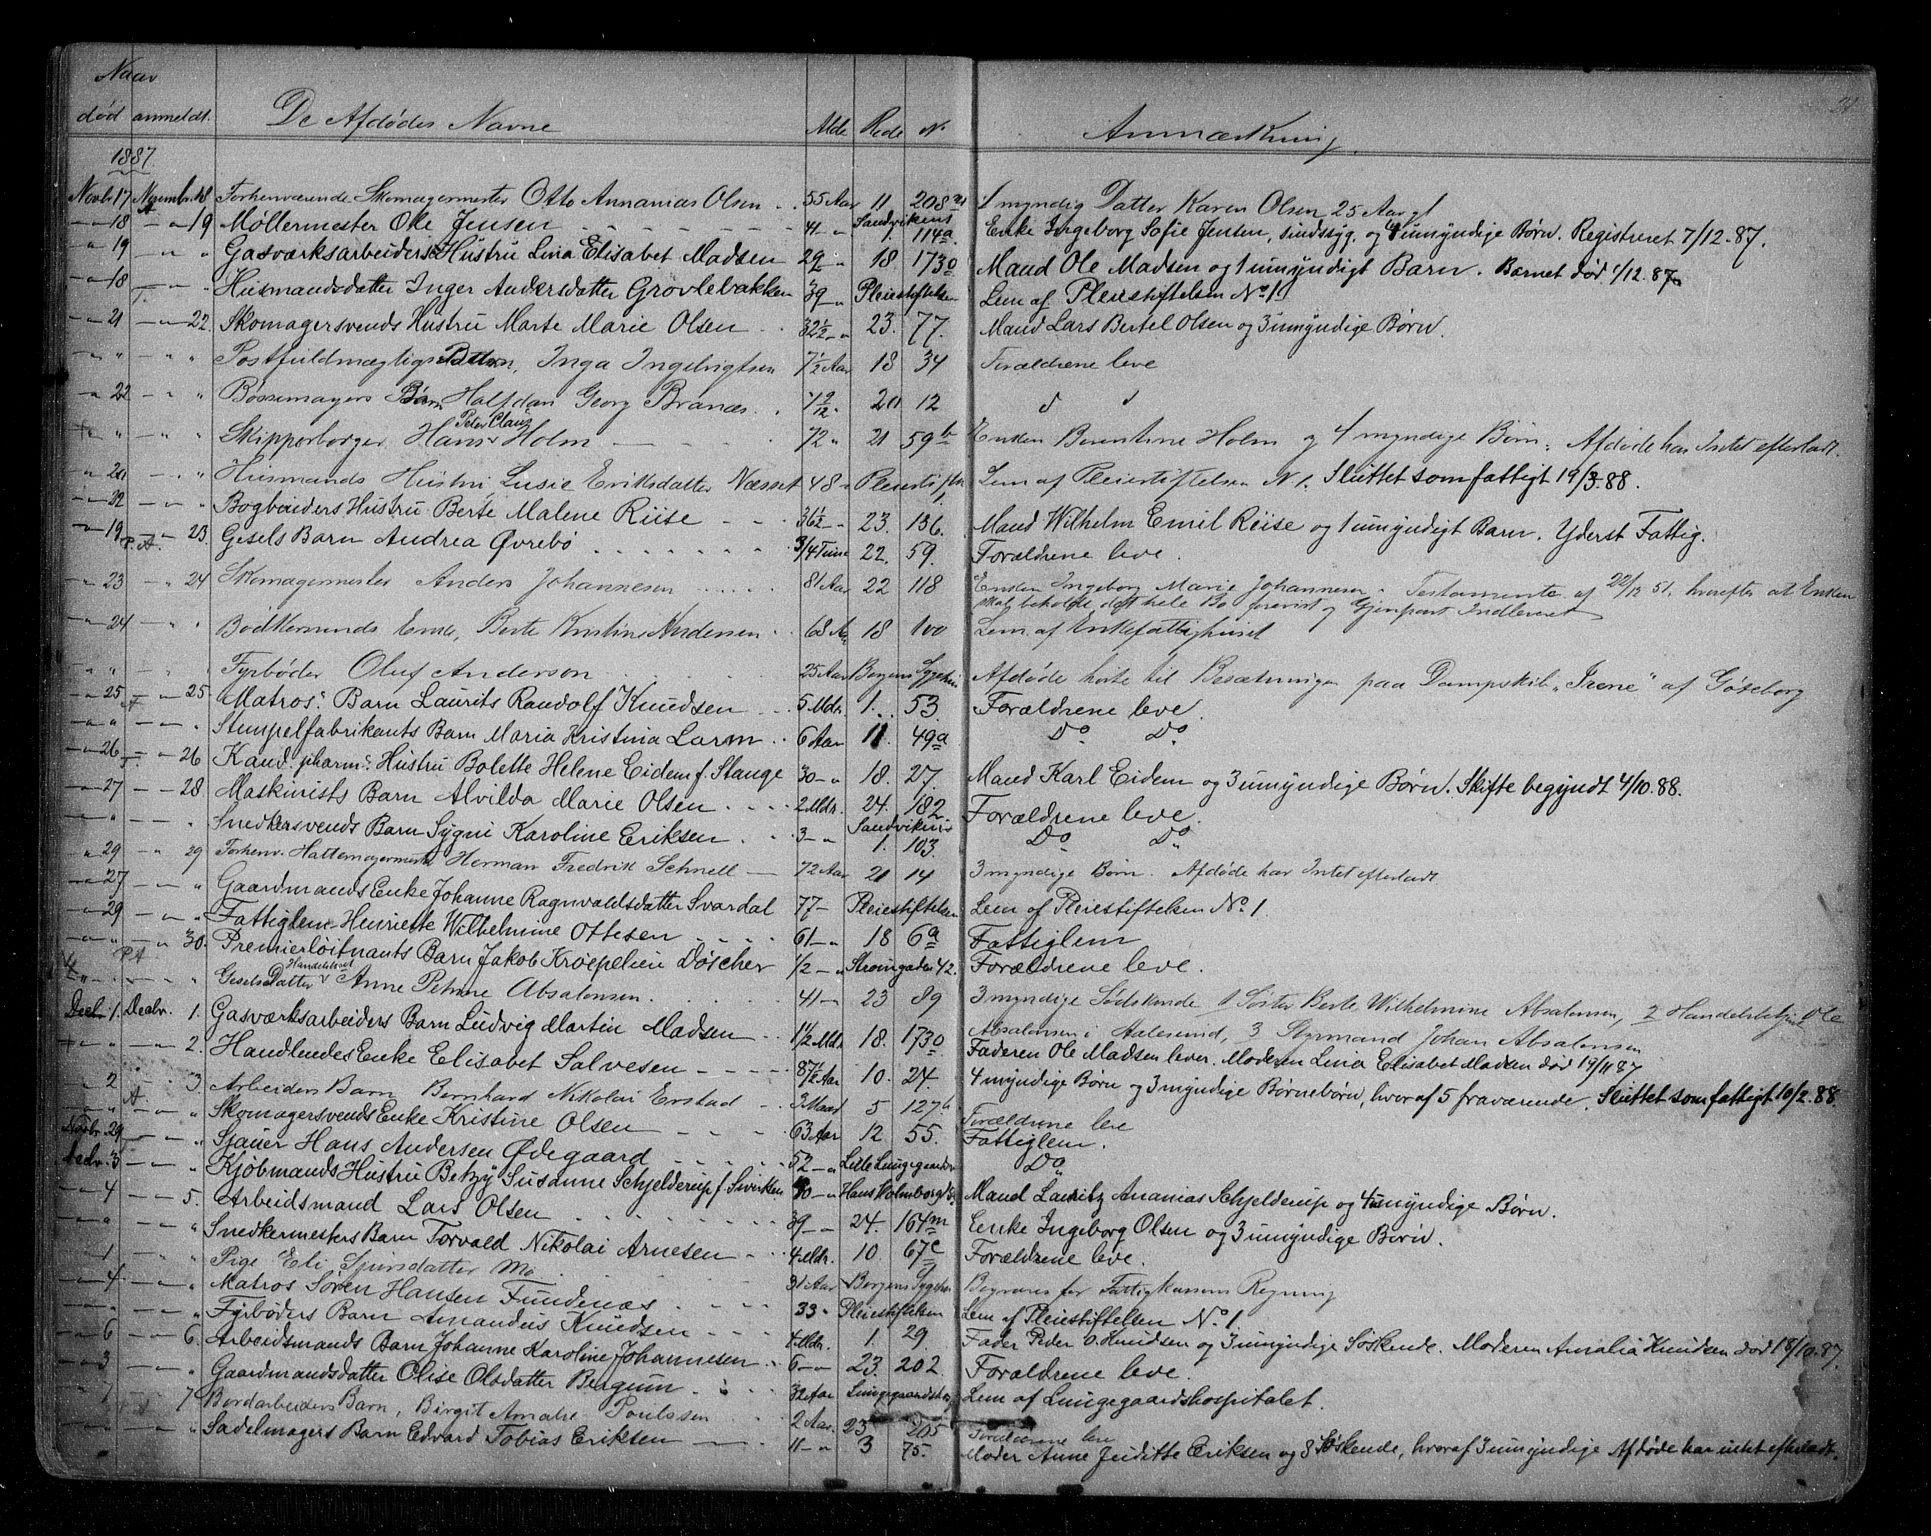 Naar
død anmeldt. De Afdødes Navne Alder Rode No Anmærkning.
1887.
Novbr. 17 Novembr. 18 Forhenværende Skomagermester Otto Annanias Olsen 55 Aar 11 208 1 myndig Datter Karen Olsen 25 Aar gl
-"- 18 - " 19 Møllermester Oke Jensen 41 " Sandvikens 1. 114a. Enke Ingeborg Sofie Jensen, sindssyg. og 4 umyndige Børn. Registreret 7/12.87.
" 19 - " " Gasværksarbeiders Hustru Lina Elisabet Madsen 29 - " 18 173o Mand Ole Madsen og 1 umyndigt Barn. Barnet død 1/12.87
- " 18 - " Husmandsdatter Inger Andersdatter Grovlebakken 39 - " Pleiestiftelsen Lem af Pleiestiftelsen No 1.
- " 21 - " 22 Skomagersvends Hustru Marte Marie Olsen 32 1/2 - " 23. 77. Mand Lars Bertel Olsen og 3 umyndige Børn.
- " " - " " Postfuldmægtigs Datter, Inga Ingebrigtsen 7 1/2 Aar 18 34 Forældrene leve
- " 22 - " " Bøssemagers Barn Halfdan Georg Branæs 1 9/12 " 20 12 d d
" " - " " Skipperborger Hans Peter Claus Holm 72 " 21 59b Enken Berentine Holm og 4 myndige Børn. Afdøde har Intet efterladt.
- " 20 - " " Husmands Hustru Lusie Eriksdatter Næsset 48 " Pleiestiften Lem af Pleiestiftelsen N 1. Sluttet som fattigt 19/3.88.
- " 22 - " " Bogbinders Hustru Berte Malene Riise 36 1/2 - " 23. 136. Mand Wilhelm Emil Riise og 1 umyndigt Barn. Yderst Fattig.
- " 19 P.A. - " 23. Gesels Barn Andrea Øvrebø 3/4 Time 22. 59. Forældrene leve.
- " 23 - " 24 Skomagermester Anders Johannesen 81 Aar 22 118 Enken Ingeborg Marie Johannesen. Testamente af 22/12 51, hvorefter at Enken
skal beholde det hele Bo forevist og Gjenpart Indleveret
- " 24 - " " Bødkersvends Enke, Berte Kristine Andersen 68 Aar 18 100 Lem af Enkefattighuset
" " - " " Fyrbøder Oluf Anderson 25 Aar Bergens Sygehus Afdøde hørte til Besætningen paa Dampskib "Irene" af Göteborg
- " 25 - " 25 Matros: Barn Laurits Randolf Knudsen 5 Mdr. 1. 53. Forældrene leve.
- " " - " " Stempelfabrikants Barn Maria Kristina Larm 6 Aar 11. 49a Do Do
- " 26 - " 26 Kand. pharm: Hustru Bolette Helene Eidem f. Stange 30 - " 18. 27. Mand Karl Eidem og 3 umyndige Børn. Skifte begyndt 4/10.88.
- " 27 - " 28 Maskinists Barn Alvilda Marie Olsen 2 Mdr. 24. 182 Forældrene leve.
- " " - " " Snedkersvends Barn Sygni Karoline Eriksen 3 - " Sandvikens 1. 103. Do Do
" 29 - " 29 Forhenv. Hattemagermester Herman Fredrik Schnell 72 Aar 21 14 3 myndige Børn. Afdøde har Intet efterladt
- " 27 - " " Gaardmands Enke Johanne Ragnvaldsdatter Svardal 77 - Pleiestiftelsen Lem af Pleiestiftelsen No 1.
- " 29 - " " Fattiglem Henriette Wilhelmine Ottesen 61 - " 18 6a Fattiglem
- " " P.A. - " 30. Premierløitnants Barn Jakob Kroepelien Døscher 1/2 - " Strømgaden 42. Forældrene leve.
" " Gesels Datter Handelsbet. Anne Petrine Absalonsen 41 - 23 89 3 myndige Sødskende 1 Søster Berte Wilhelmine Absalonsen, 2 Handelsbetjent Ole
Decbr. 1. Decbr. 1. Gasværksarbeiders Barn Ludvig Martin Madsen 1 1/2 Mdr 18. 173o Absalonsen i Aalesund, 3 Styrmand Johan Absalonsen
Faderen Ole Madsen lever. Moderen Lina Elisabet Madsen død 19/11 87
- " " - " 2. Handlendes Enke Elisabet Salvesen 87 1/2 Aar 10. 24. 4 myndige Børn og 3 myndige Børnebørn, hvoraf 5 fraværende. Sluttet som fattigt 10/2.88
- " 2 - " 3. Arbeiders Barn Bernhard Nikolai Erstad 3 Maand 5 127b Forældrene leve
- " " - " " Skomagersvends Enke Kristine Olsen 63 Aar 12 55. Fattiglem.
Novbr. 29 - " " Sjauer Hans Andersen Ødegaard 52 - " Lille Lungegaarden Do
Decbr. 3 - " " Kjøbmands Hustru Betzy Susanne Schjelderup f. 30 - " Mand Lauritz Ananias Schjelderup og 4 umyndige Børn.
- " 4 - " 5. Arbeidsmand Lars Olsen 39 - " 24. 164m Enke Ingeborg Olsen og 3 umyndige Børn.
- " " - " " Snedkermesters Barn Torvald Nikolai Arnesen 4 Mdr. 10 67c Forældrene leve.
- " 1 - " " Pige Eli Sjursdatter Mo 31 Aar Bergens Sygehus Begraves for Fattigkassens Regning
- " 4 - " " Matros Søren Hansen Fundenæs 33 " Pleiestiftelsen Lem af Pleiestiftelsen No 1.
" " - " " Fyrbøders Barn Amandus Knudsen 4 Mdr. 1 29. Fader Peder O. Knudsen og 3 umyndige Søskende. Moderen Amalia Knudsen død 18/10.87.
- " 6 - " 6. Arbeidsmands Barn Johanne Karoline Johannesen 6 - " 23. 202. Forældrene leve.
- " 3 - " " Gaardmandsdatter Olise Olsdatter Bergum 32 Aar Lungegaardshosp Lem af Lungegaardshospitalet.
- " 7 - 7 Bordarbeiders Barn, Birgit Amalie Poulssen 2 Aar. 23 205 Forældrene leve
" " - " " Sadelmagers Barn Edvard Tobias Eriksen 11 - " 3 75. Moder Anne Juditte Eriksen og 8 Søskende, hvoraf 3 umyndige Afdøde har intet efterladt.